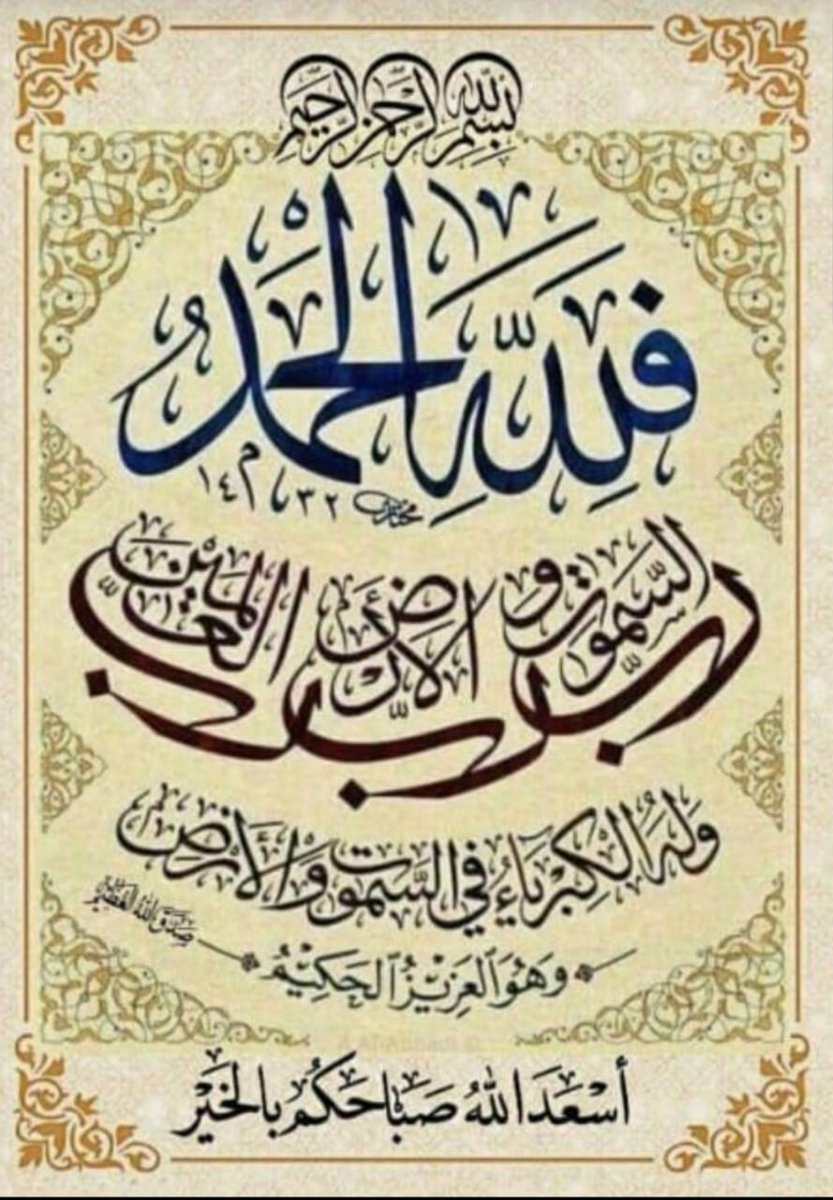 بِسْمِ اللهِ الرَّحْمٰنِ الرَّحِيمِ
فَلِلّٰهِ الْحَمْدُ
مختار ١٤٣٢
رَبِّ السَّمٰوٰتِ وَرَبِّ الْأَرْضِ رَبِّ الْعَالَمِينَ
وَلَهُ الْكِبْرِيَاءُ فِي السَّمٰوٰتِ وَالْأَرْضِ
صدق الله العظيم
وَهُوَ الْعَزِيزُ الْحَكِيمُ
أَسْعَدَ اللهُ صَبَاحَكُم بِالخَيْر